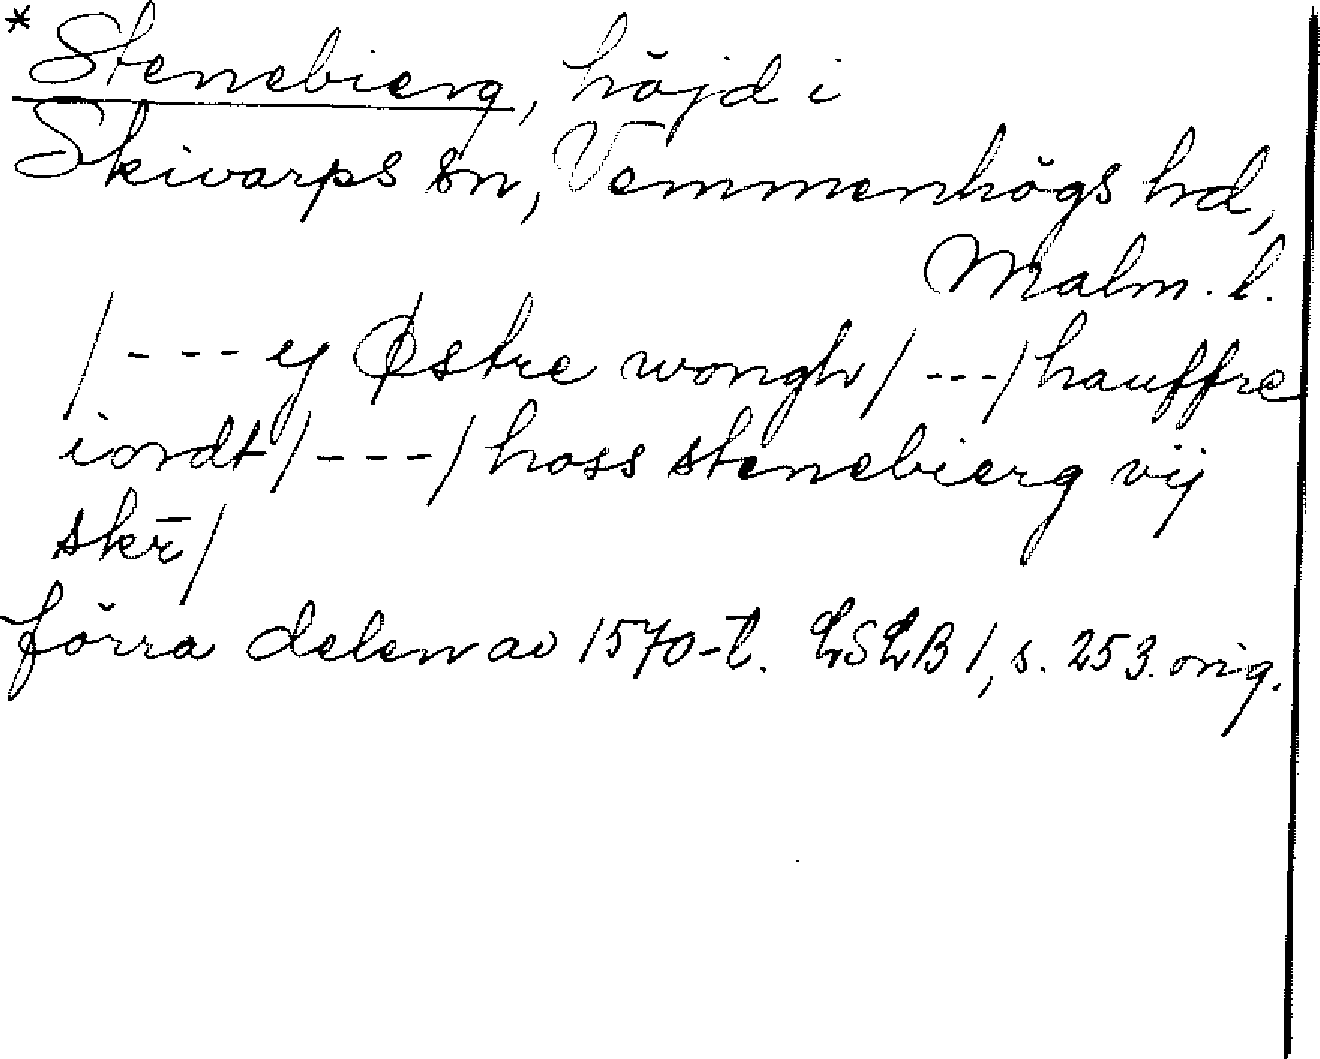 * Stenebierg, höjd i
Skivarps sn, Vemmenhögs hd,
Malm. l.
/ - - - ij Østre wongh / --- / hauffre
iordt / - - - / hoss stenebierg vij
skr̄ /
förra delen av 1570-t. LSLB 1, s. 253. orig.